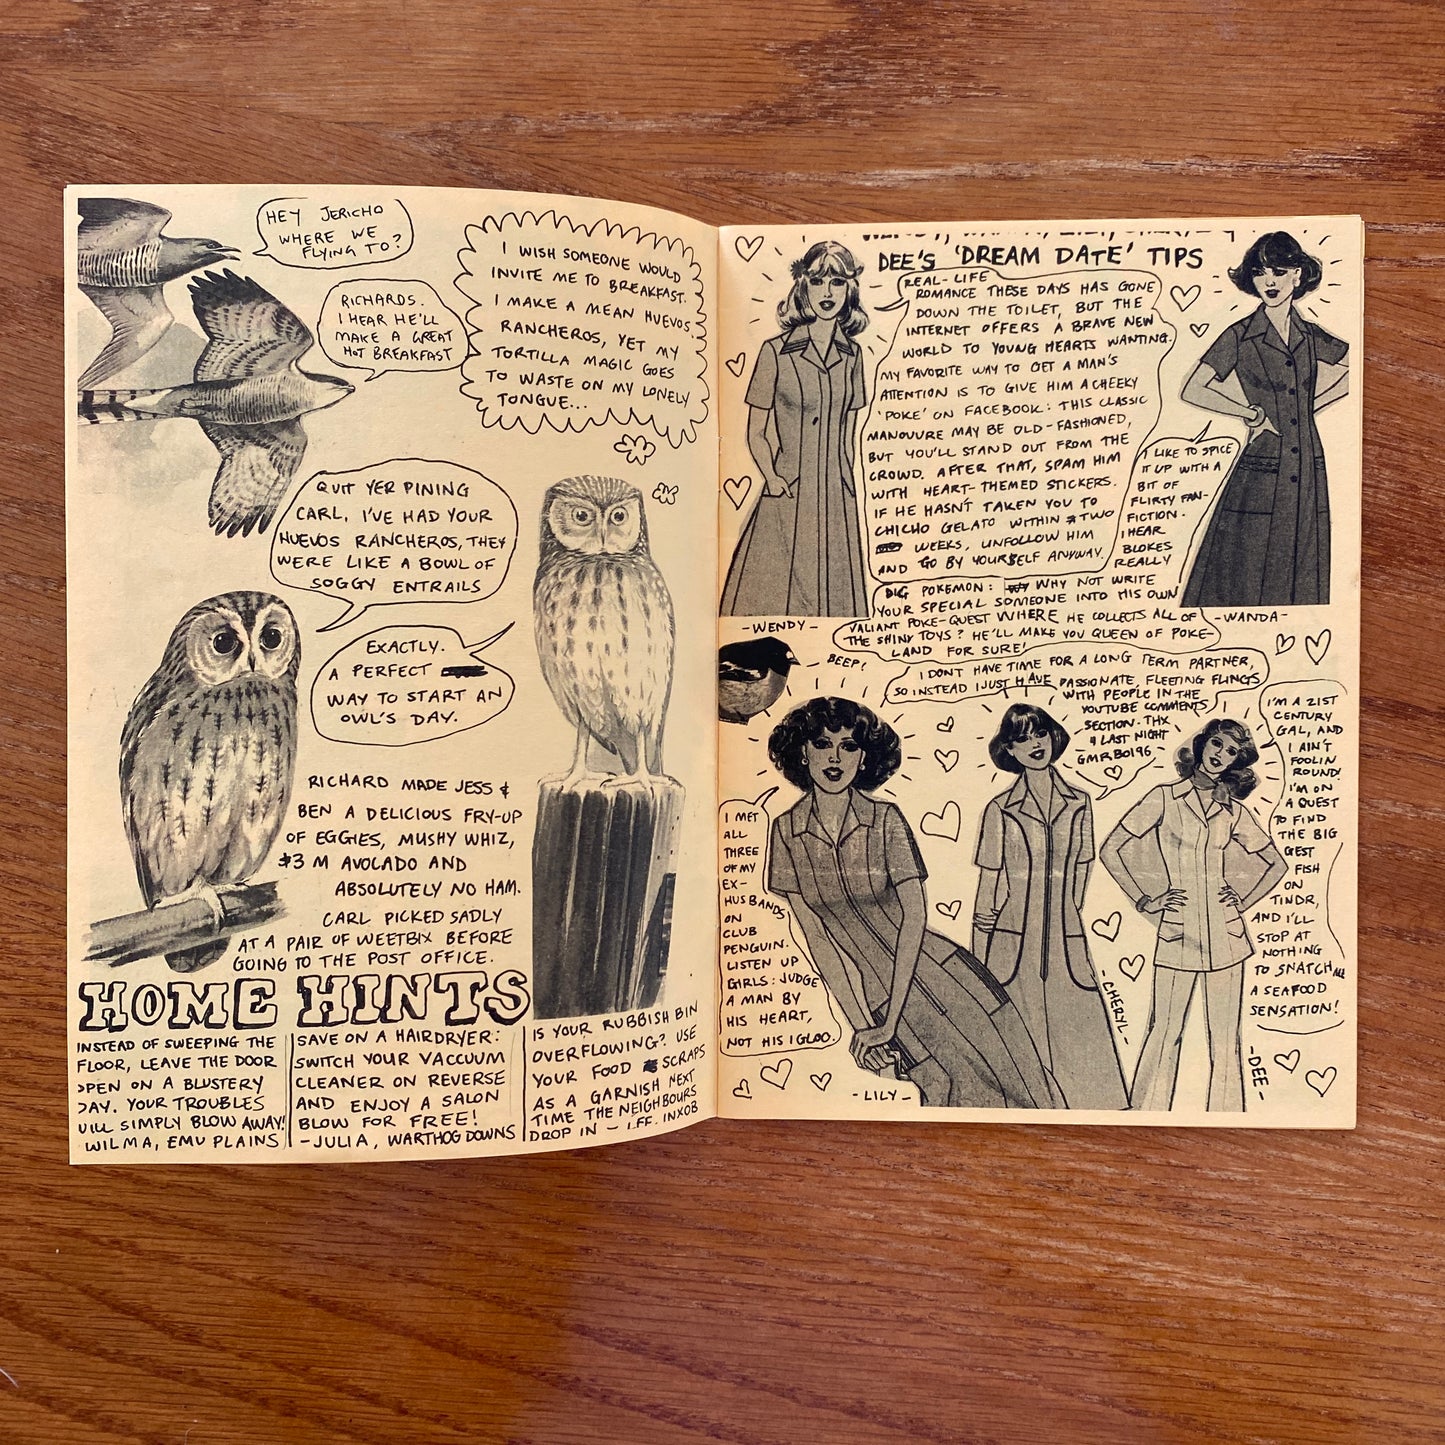 HEY JERICHO
WHERE WE
FLYING TO?
RICHARDS.
I HEAR HE'LL
MAKE A GREAT
HOT BREAKFAST
I WISH SOMEONE WOULD
INVITE ME TO BREAKFAST.
I MAKE A MEAN HUEVOS
RANCHEROS, YET MY
TORTILLA MAGIC GOES
TO WASTE ON MY LONELY
TONGUE...
QUIT YER PINING
CARL, I'VE HAD YOUR
HUEVOS RANCHEROS, THEY
WERE LIKE A BOWL OF
SOGGY ENTRAILS
EXACTLY.
A PERFECT
WAY TO START AN
OWL'S DAY.
RICHARD MADE JESS &
BEN A DELICIOUS FRY-UP
OF EGGIES, MUSHY WHIZ,
$3 M AVOCADO AND
ABSOLUTELY NO HAM.
CARL PICKED SADLY
AT A PAIR OF WEETBIX BEFORE
GOING TO THE POST OFFICE.
HOME HINTS
INSTEAD OF SWEEPING THE
FLOOR, LEAVE THE DOOR
OPEN ON A BLUSTERY
DAY. YOUR TROUBLES
WILL SIMPLY BLOW AWAY!
WILMA, EMU PLAINS
SAVE ON A HAIRDRYER:
SWITCH YOUR VACCUUM
CLEANER ON REVERSE
AND ENJOY A SALON
BLOW FOR FREE!
- JULIA, WARTHOG DOWNS
IS YOUR RUBBISH BIN
OVERFLOWING? USE
YOUR FOOD SCRAPS
AS A GARNISH NEXT
TIME THE NEIGHBOURS
DROP IN - I.FF. INXOB
DEE'S 'DREAM DATE' TIPS
REAL-LIFE
ROMANCE THESE DAYS HAS GONE
DOWN THE TOILET, BUT THE
INTERNET OFFERS A BRAVE NEW
WORLD TO YOUNG HEARTS WANTING.
MY FAVORITE WAY TO GET A MAN'S
ATTENTION IS TO GIVE HIM A CHEEKY
'POKE' ON FACEBOOK: THIS CLASSIC
MANOUURE MAY BE OLD-FASHIONED,
BUT YOU'LL STAND OUT FROM THE
CROWD. AFTER THAT, SPAM HIM
WITH HEART-THEMED STICKERS.
IF HE HASN'T TAKEN YOU TO
CHICHO GELATO WITHIN TWO
WEEKS, UNFOLLOW HIM
AND GO BY YOURSELF ANYWAY.
- WENDY -
I LIKE TO SPICE
IT UP WITH A
BIT OF
FLIRTY FAN-
FICTION.
I HEAR
BLOKES
REALLY
DIG POKEMON: WHY NOT WRITE
YOUR SPECIAL SOMEONE INTO HIS OWN
VALIANT POKE-QUEST WHERE HE COLLECTS ALL OF
THE SHINY TOYS? HE'LL MAKE YOU QUEEN OF POKE-
LAND FOR SURE!
- WANDA -
BEEP!
I DONT HAVE TIME FOR A LONG TERM PARTNER,
SO INSTEAD I JUST HAVE PASSIONATE, FLEETING FLINGS
WITH PEOPLE IN THE
YOUTUBE COMMENTS
SECTION. THX
4 LAST NIGHT
GMRBOI96
- CHERYL -
I MET
ALL
THREE
OF MY
EX-
HUSBANDS
ON
CLUB
PENGUIN.
LISTEN UP
GIRLS: JUDGE
A MAN BY
HIS HEART,
NOT HIS IGLOO.
- LILY -
I'M A 21ST
CENTURY
GAL, AND
I AIN'T
FOOLIN
ROUND!
I'M ON
A QUEST
TO FIND
THE BIG
GEST
FISH
ON
TINDR,
AND I'LL
STOP AT
NOTHING
TO SNATCH ME
A SEAFOOD
SENSATION!
- DEE -